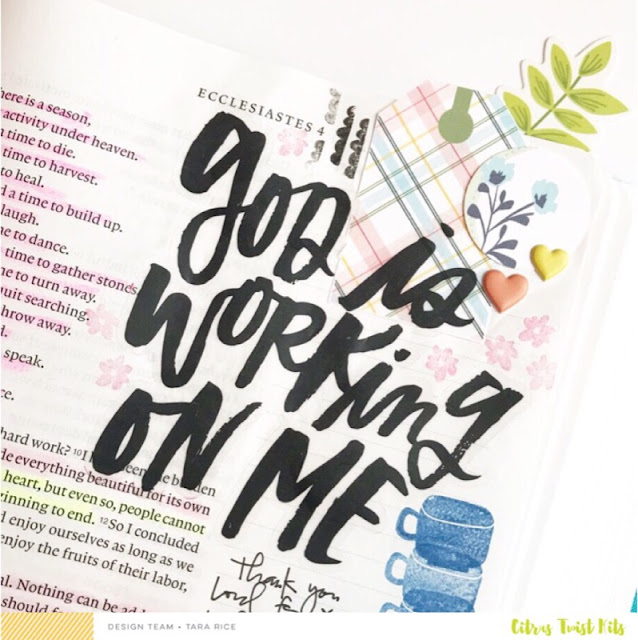 ECCLESIASTES 4
here is a season,
activity under heaven.
time to die.
time to harvest.
to heal.
d a time to build up.
laugh.
me to dance.
time to gather stones
ne to turn away.
quit searching.
throw away.
d.
speak.
ce.
hard work? 10 I
de everything beautiful for its own
heart, but even so, people cannot
ginning to end. 12 So I concluded
d enjoy ourselves as long as we
enjoy the fruits of their labor,
al. Nothing can be
should
god is
WORKing
ON ME
Thank you
Lord
DESIGN TEAM • TARA RICE
Citrus Twist Kits